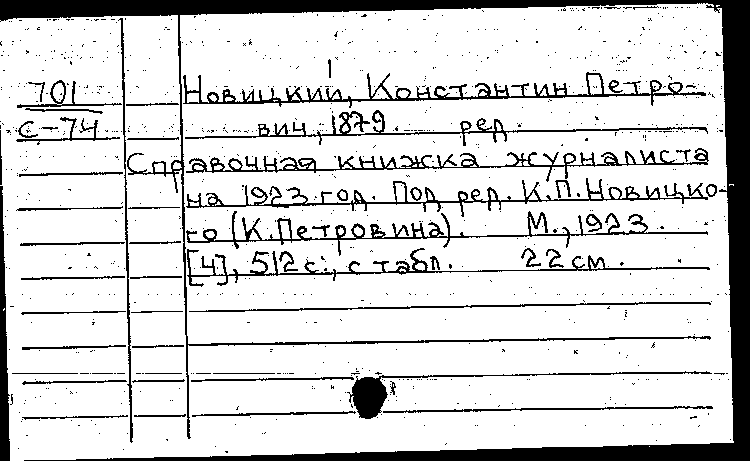 701 Новицкий, Константин Петро-
С-74 вич, 1879. ред.
Справочная книжка журналиста
на 1923 год. Под ред. К.П.Новицко-
го (К.Петровина). М., 1923.
[4], 512 с., с табл. 22 см.